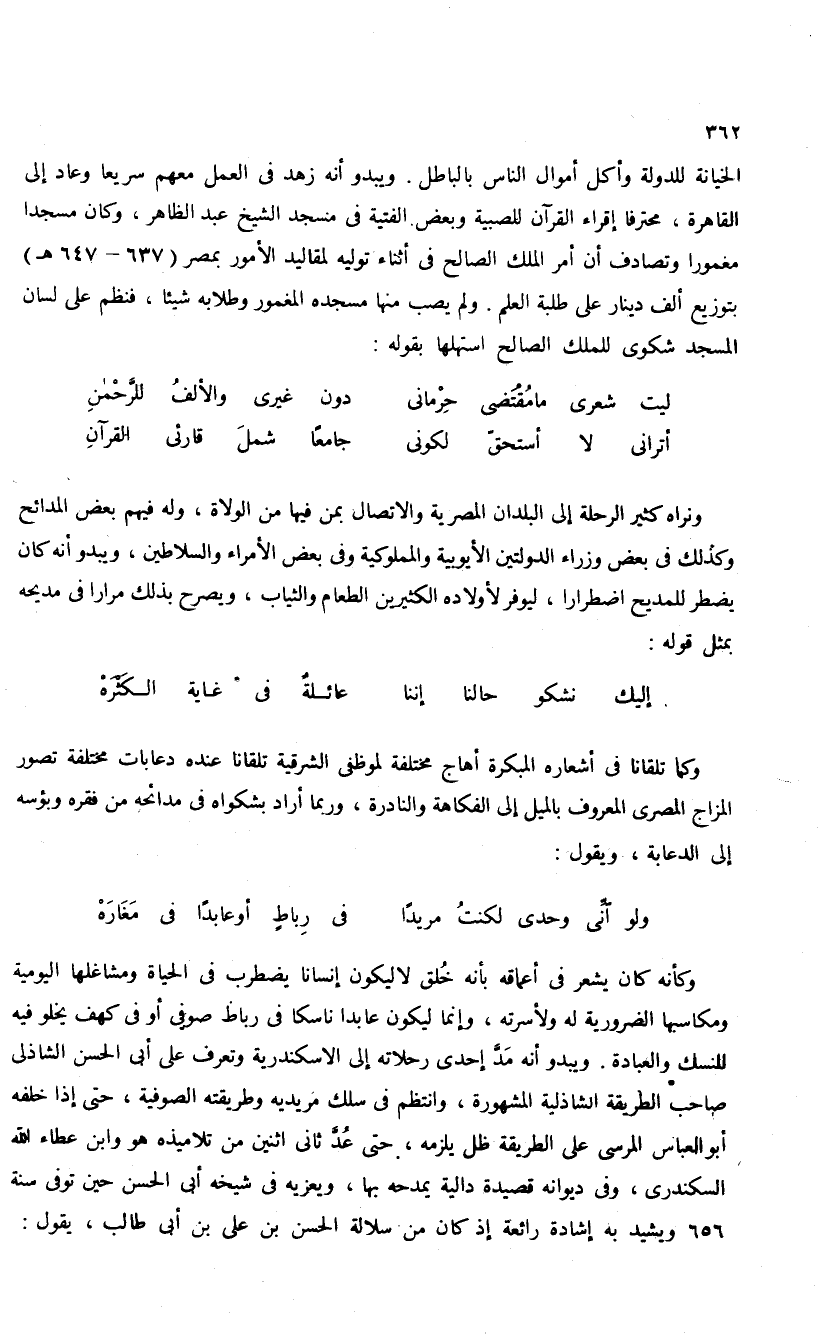 ٣٦٢
الخيانة للدولة وأكل أموال الناس بالباطل . ويبدو أنه زهد فى العمل معهم سريعا وعاد إلى
القاهرة ، محترفا إقراء القرآن للصبية وبعض الفتية فى مسجد الشيخ عبد الظاهر ، وكان مسجدا
مغمورا وتصادف أن أمر الملك الصالح فى أثناء توليه لمقاليد الأمور بمصر ( ٦٣٧ – ٦٤٧ هـ )
بتوزيع ألف دينار على طلبة العلم . ولم يصب منها مسجده المغمور وطلابه شيئا ، فنظم على لسان
المسجد شكوى للملك الصالح استهلها بقوله :
ليت شعرى مامُقْتَضى حِرْمانى دون غيرى والألفُ للرَّحْمٰنِ
أترانى لا أستحقّ لكونى جامعًا شملَ قارئى القرآنِ
ونراه كثير الرحلة إلى البلدان المصرية والاتصال بمن فيها من الولاة ، وله فيهم بعض المدائح
وكذلك فى بعض وزراء الدولتين الأيوبية والمملوكية وفى بعض الأمراء والسلاطين ، ويبدو أنه كان
يضطر للمديح اضطرارا ، ليوفر لأولاده الكثيرين الطعام والثياب ، ويصرح بذلك مرارا فى مديحه
بمثل قوله :
إليك نشكو حالنا إننا عائلةٌ فى غاية الكَثْرَهْ
وكما تلقانا فى أشعاره المبكرة أهاج مختلفة لموظفى الشرقية تلقانا عنده دعابات مختلفة تصور
المزاج المصرى المعروف بالميل إلى الفكاهة والنادرة ، وربما أراد بشكواه فى مدائحه من فقره وبؤسه
إلى الدعابة ، ويقول :
ولو أنِّى وحدى لكنتُ مريدًا فى رِباطٍ أوعابدًا فى مَغَارَهْ
وكأنه كان يشعر فى أعماقه بأنه خُلق لاليكون إنسانا يضطرب فى الحياة ومشاغلها اليومية
ومكاسبها الضرورية له ولأسرته ، وإنما ليكون عابدا ناسكا فى رباط صوفى أو فى كهف يخلو فيه
للنسك والعبادة . ويبدو أنه مَدَّ إحدى رحلاته إلى الاسكندرية وتعرف على أبى الحسن الشاذلى
صاحب الطريقة الشاذلية المشهورة ، وانتظم فى سلك مريديه وطريقته الصوفية ، حتى إذا خلفه
أبوالعباس المرسى على الطريقة ظل يلزمه ، حتى عُدَّ ثانى اثنين من تلاميذه هو وابن عطاء الله
السكندرى ، وفى ديوانه قصيدة دالية يمدحه بها ، ويعزيه فى شيخه أبى الحسن حين توفى سنة
٦٥٦ ويشيد به إشادة رائعة إذ كان من سلالة الحسن بن على بن أبى طالب ، يقول :